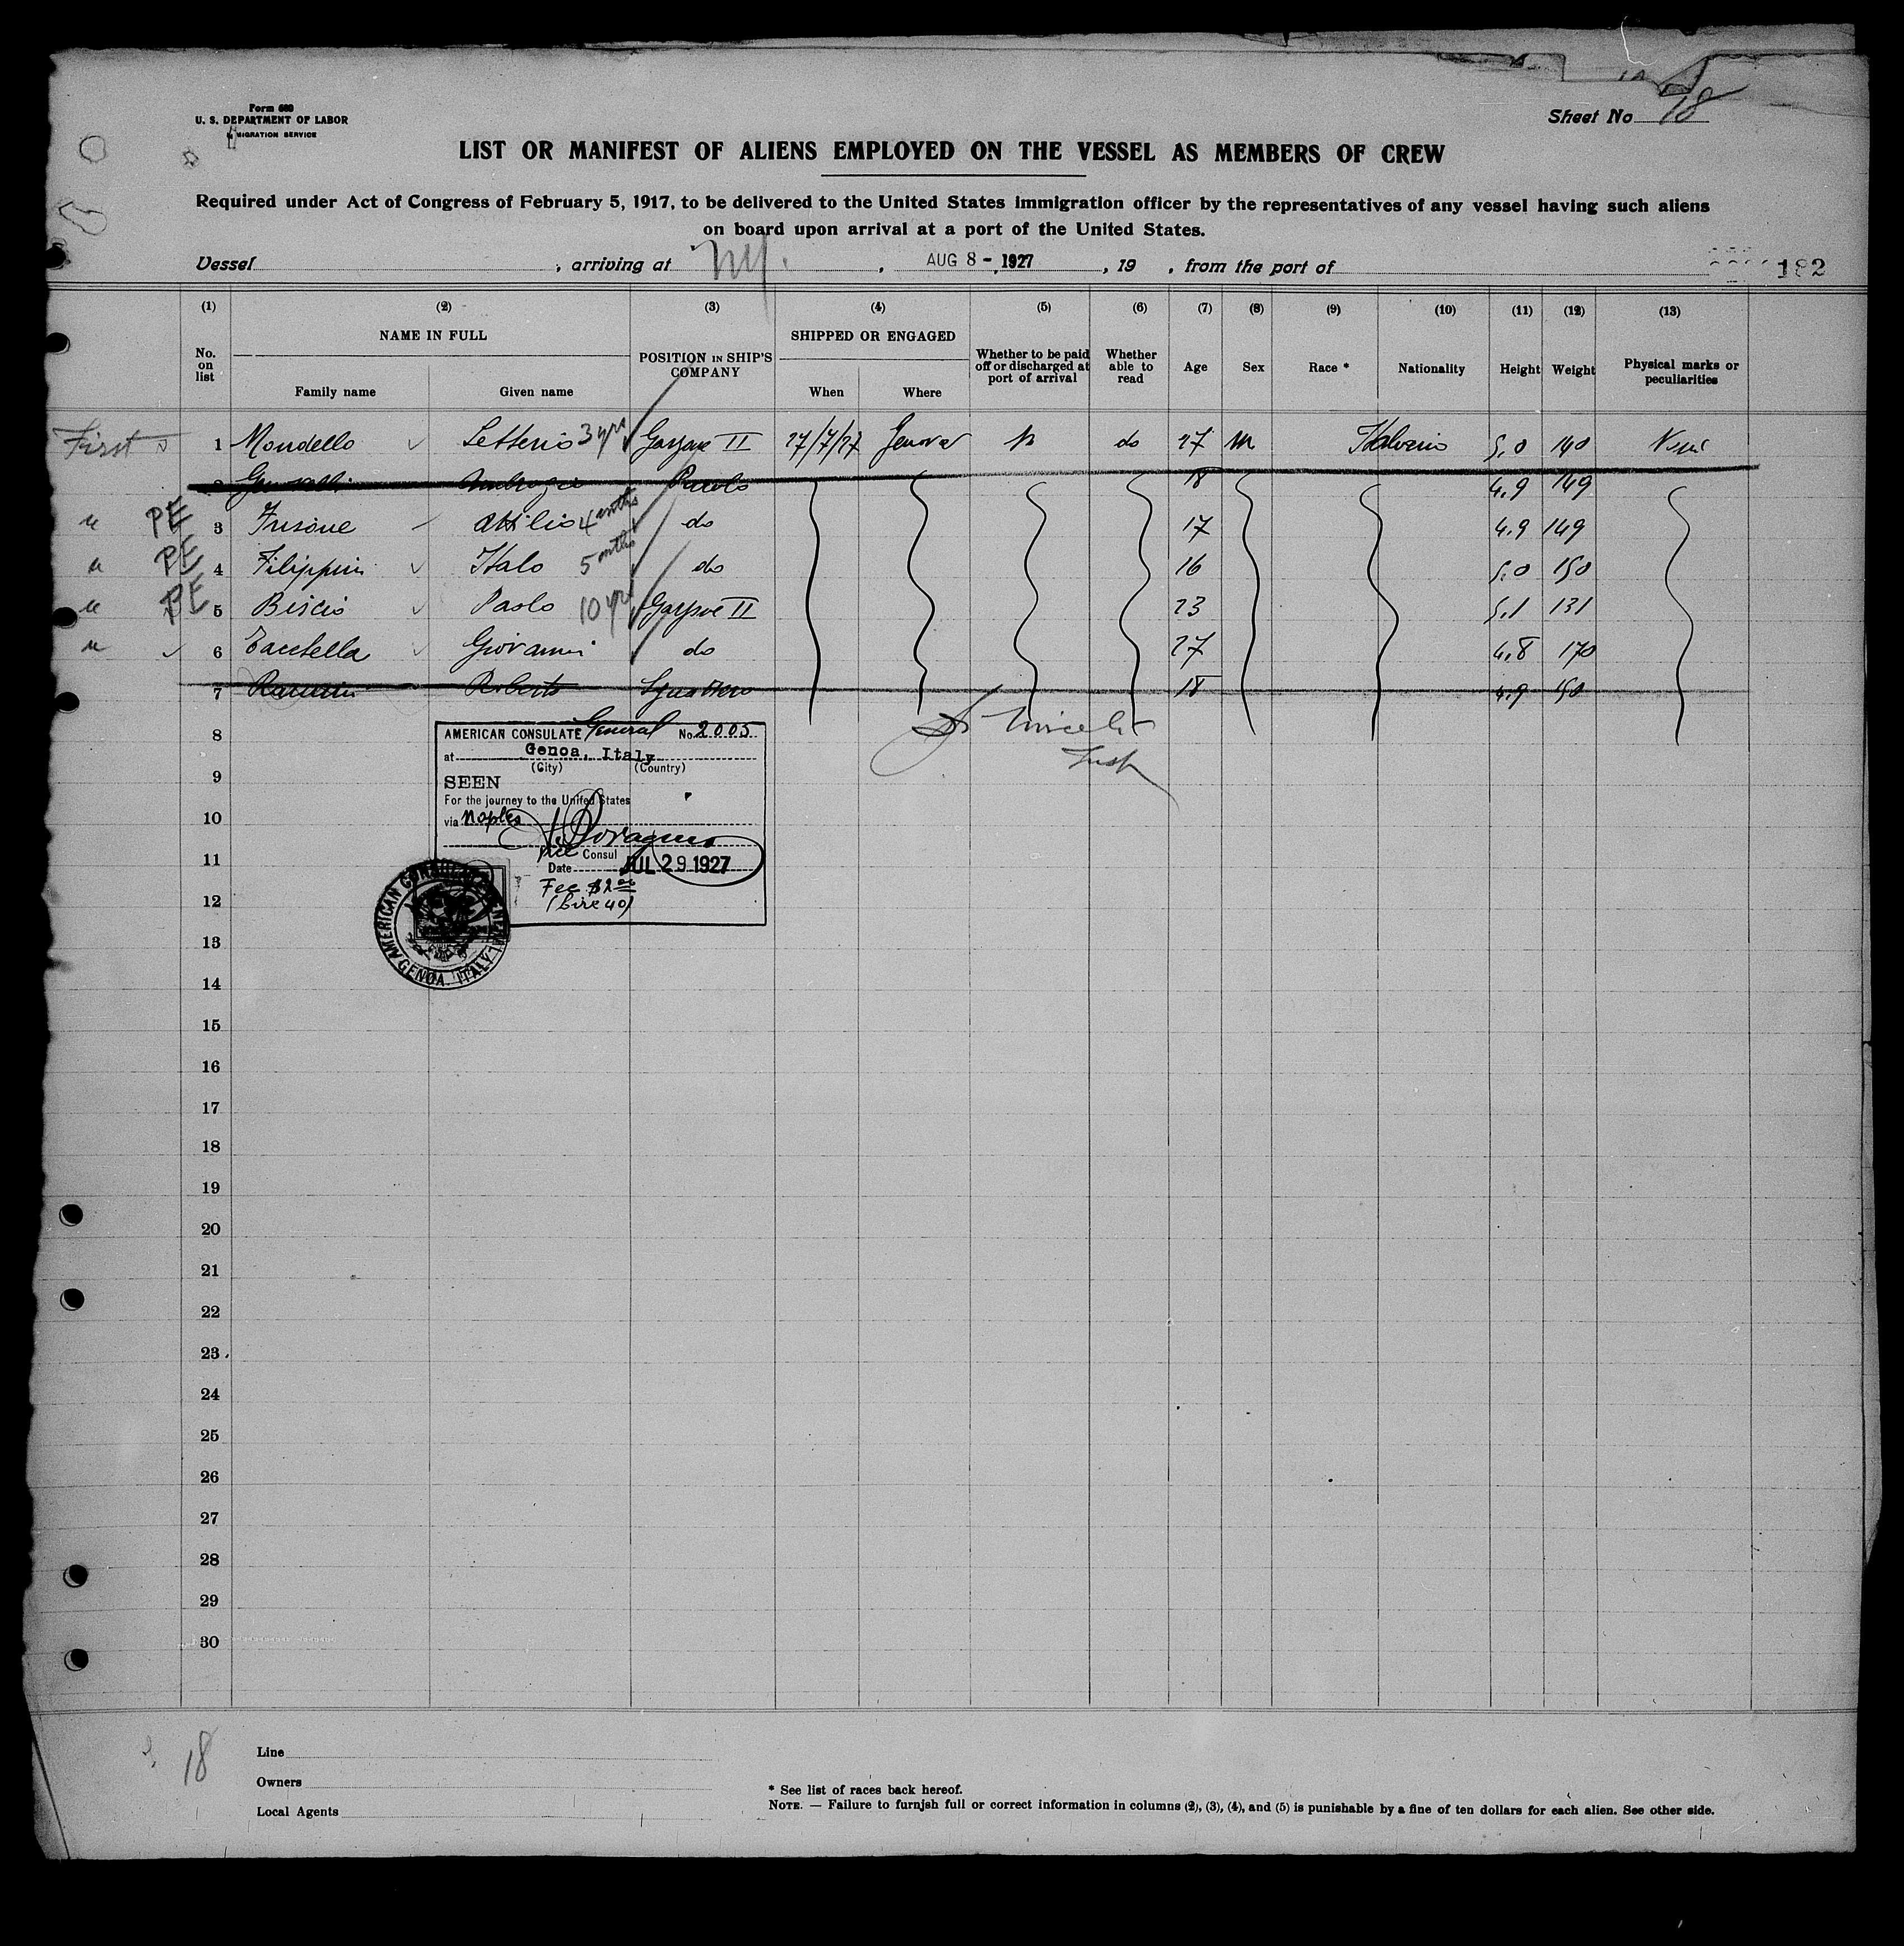 Form 680
U. S. DEPARTMENT OF LABOR
IMMIGRATION SERVICE
Sheet No 78
LIST OR MANIFEST OF ALIENS EMPLOYED ON THE VESSEL AS MEMBERS OF CREW
Required under Act of Congress of February 5, 1917, to be delivered to the United States immigration officer by the representatives of any vessel having such aliens
on board upon arrival at a port of the United States.
Vessel , arriving at NY. , AUG 8 - 1927 , 19 , from the port of 182
(1) (2) (3) (4) (5) (6) (7) (8) (9) (10) (11) (12) (13)
No. on list NAME IN FULL Family name Given name POSITION IN SHIP'S COMPANY SHIPPED OR ENGAGED When Where Whether to be paid off or discharged at port of arrival Whether able to read Age Sex Race * Nationality Height Weight Physical marks or peculiarities
First 1 Mondello Letterio 3 yrs II 27/7/27 Genova do 27 M 5.0 140
2 Ambrogio 18 4.9 149
" PE 3 Frisone Attilio 4 mths do 17 4.9 149
" PE 4 Filippini Italo 5 mths do 16 5.0 150
" PE 5 Biscio Paolo 10 yrs II 23 5.1 131
" 6 Zacctella Giovanni do 27 4.8 170
7 Roberto 18 4.9 150
8
AMERICAN CONSULATE General No. 2005
at Genoa, Italy
(City) (Country)
9
SEEN
For the journey to the United States
10
via Naples
11
Consul
Date JUL 29 1927
Fee $2.00
12
(Lire 40)
AMERICAN CONSULATE GENERAL
GENOA. ITALY
13
14
15
16
17
18
19
20
21
22
23
24
25
26
27
28
29
30
18
Line
Owners
Local Agents
* See list of races back hereof.
NOTE. — Failure to furnish full or correct information in columns (2), (3), (4), and (5) is punishable by a fine of ten dollars for each alien. See other side.